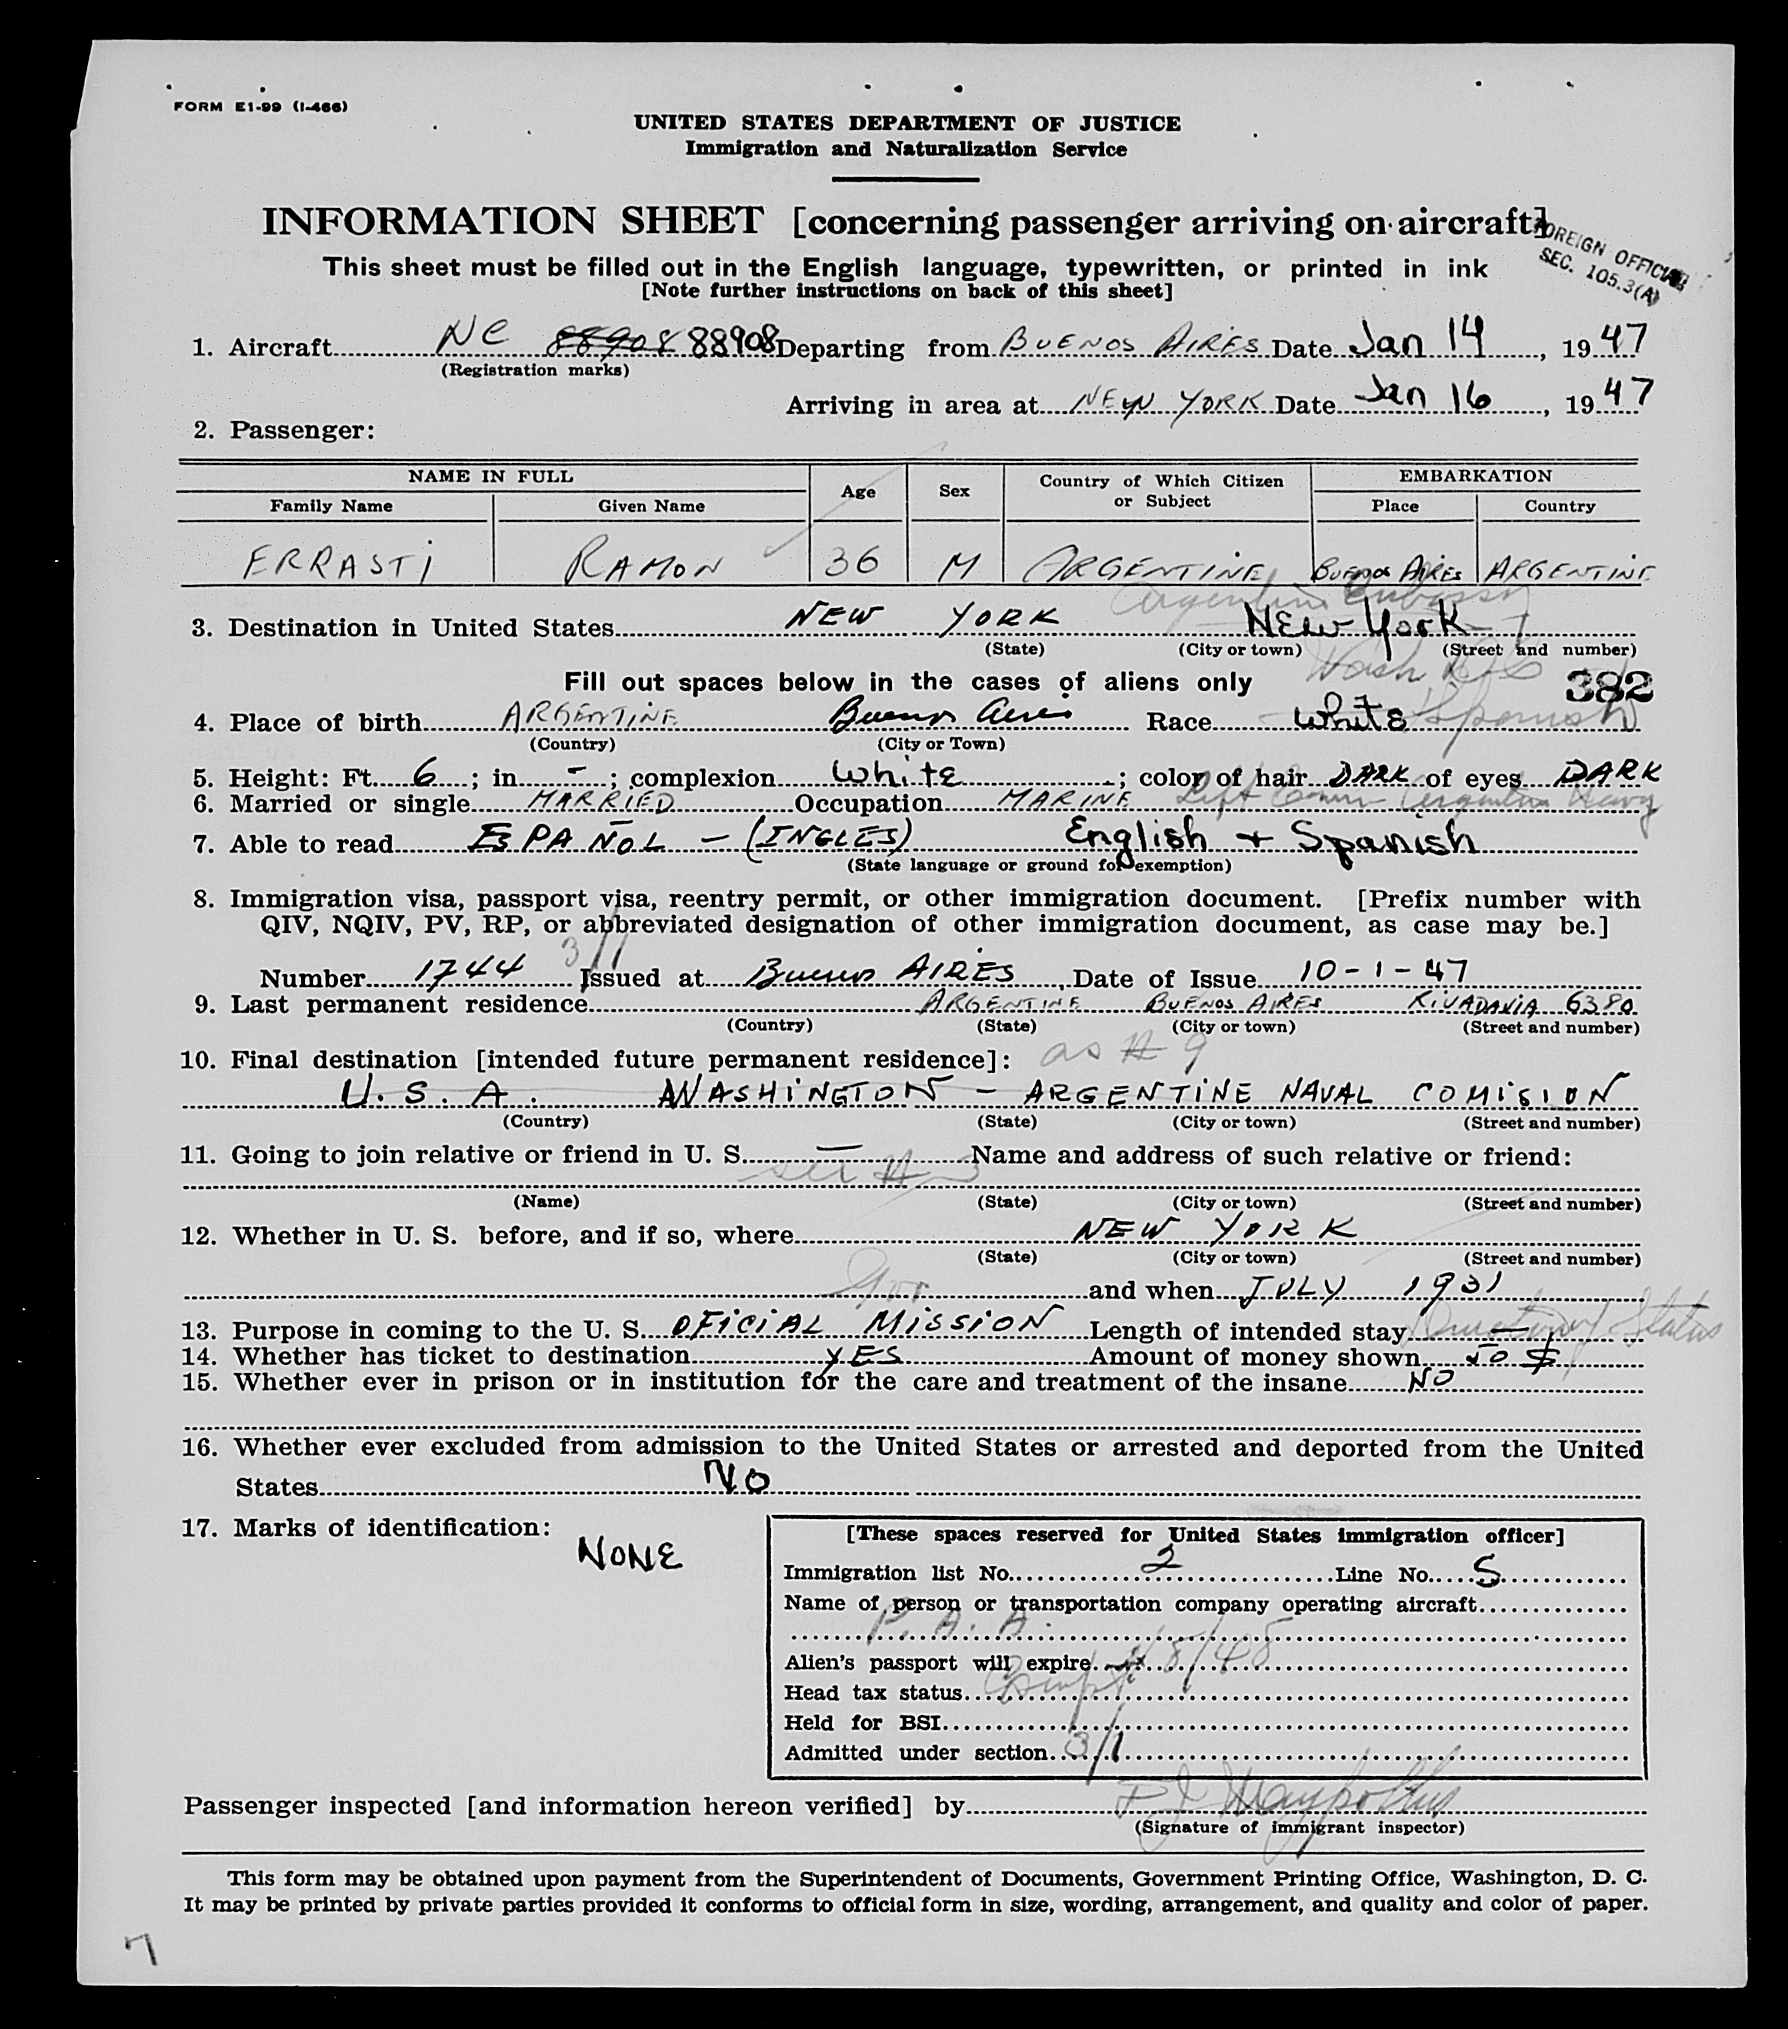 FORM E1-99 (I-466)
UNITED STATES DEPARTMENT OF JUSTICE
Immigration and Naturalization Service
INFORMATION SHEET [concerning passenger arriving on aircraft]
FOREIGN OFFICIAL
SEC. 105.3(A)
This sheet must be filled out in the English language, typewritten, or printed in ink
[Note further instructions on back of this sheet]
1. Aircraft NC 88908 88908 Departing from BUENOS AIRES Date Jan 14, 1947
(Registration marks)
Arriving in area at NEW YORK Date Jan 16, 1947
2. Passenger:
NAME IN FULL Age Sex Country of Which Citizen or Subject EMBARKATION
Family Name Given Name Place Country
ERRASTI RAMON 36 M ARGENTINE BUENOS AIRES ARGENTINE
Argentine Embassy
3. Destination in United States NEW YORK NEW York
(State) (City or town) (Street and number)
Wash DC
Fill out spaces below in the cases of aliens only 382
4. Place of birth ARGENTINE Buenos Aires Race White Spanish
(Country) (City or Town)
5. Height: Ft. 6; in. -; complexion White; color of hair DARK of eyes DARK
6. Married or single MARRIED Occupation MARINE Left Comm Argentine Navy
7. Able to read ESPAÑOL - (INGLES) English + Spanish
(State language or ground for exemption)
8. Immigration visa, passport visa, reentry permit, or other immigration document. [Prefix number with
QIV, NQIV, PV, RP, or abbreviated designation of other immigration document, as case may be.]
3/1
Number 1744 Issued at Buenos AIRES, Date of Issue 10-1-47
9. Last permanent residence ARGENTINE BUENOS AIRES RIVADAVIA 6380
(Country) (State) (City or town) (Street and number)
10. Final destination [intended future permanent residece]: as # 9
U.S.A. WASHINGTON - ARGENTINE NAVAL COMISION
(Country) (State) (City or town) (Street and number)
11. Going to join relative or friend in U. S. — Name and address of such relative or friend:
see # 3
(Name) (State) (City or town) (Street and number)
12. Whether in U. S. before, and if so, where NEW YORK
(State) (City or town) (Street and number)
and when JULY 1931
13. Purpose in coming to the U. S. OFICIAL MISSION Length of intended stay — Status
14. Whether has ticket to destination YES Amount of money shown 50 $
15. Whether ever in prison or in institution for the care and treatment of the insane NO
16. Whether ever excluded from admission to the United States or arrested and deported from the United
States NO
17. Marks of identification: NONE
[These spaces reserved for United States immigration officer]
Immigration list No. 2 Line No. 5
Name of person or transportation company operating aircraft
P. A. A.
Alien's passport will expire 8/48
Head tax status Exempt
Held for BSI
Admitted under section 3/1
Passenger inspected [and information hereon verified] by
(Signature of immigrant inspector)
This form may be obtained upon payment from the Superintendent of Documents, Government Printing Office, Washington, D. C.
It may be printed by private parties provided it conforms to official form in size, wording, arrangement, and quality and color of paper.
7